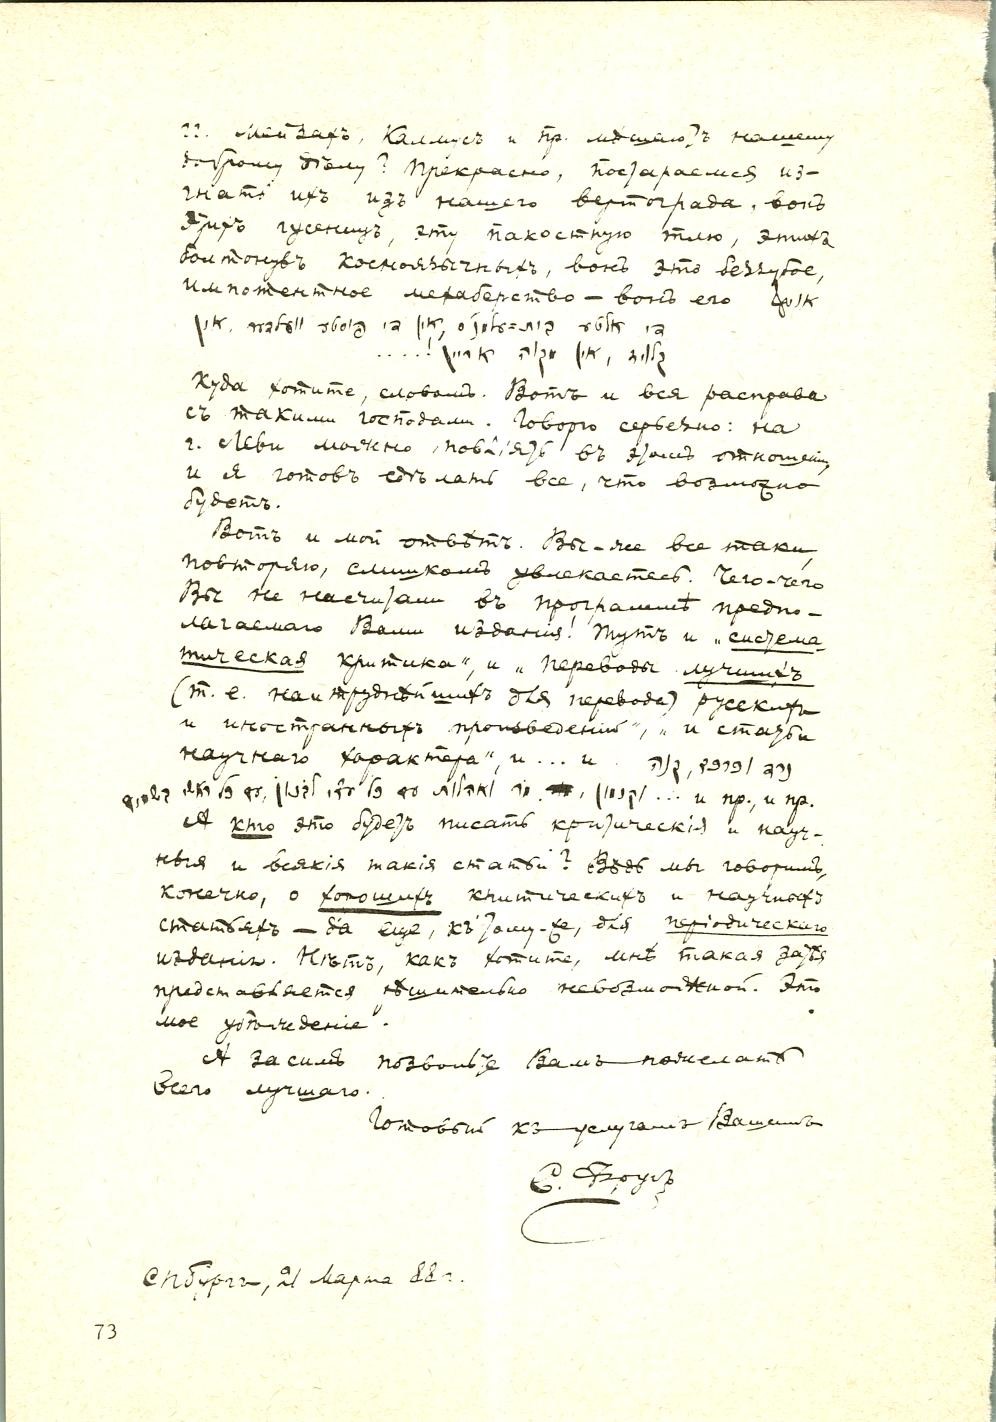 гг. Мейзахъ, Калмусъ и пр. мѣшаютъ нашему
доброму дѣлу? Прекрасно, постараемся из-
гнать ихъ изъ нашего вертограда, вонъ
этихъ гусеницъ, эту пакостную тлю, этихъ
болтоновъ косноязычныхъ, вонъ это беззубое,
импотентное мехаберство — вонъ его אויף
די אלטע אין די פוסטע וועלדער, אין
אין מקוה אריין! ....
Куда хотите, словомъ. Вотъ и вся расправа
съ такими господами. Говорю серьезно: на
г. Леви можно повліять въ этомъ отношеніи,
и я готовъ сдѣлать все, что возможно
будетъ.
Вотъ и мой отвѣтъ. Вы-же все таки,
повторяю, слишкомъ увлекаетесь. Чего-чего
Вы не насчитали въ программѣ предпо-
лагаемаго Вами изданія! Тутъ и „система-
тическая критика“, и „переводы лучшихъ
(т. е. наитруднѣйшихъ для перевода) русскихъ
и иностранныхъ произведеній“, „и статьи
научнаго характера“, и ... и נרד וכרכם, קנה
וקנמון, ... и пр., и пр.
А кто это будетъ писать критическія и науч-
ныя и всякія такія статьи? Вѣдь мы говоримъ,
конечно, о хорошихъ критическихъ и научныхъ
статьяхъ — да еще, къ тому-же, для періодическаго
изданія. Нѣтъ, какъ хотите, мнѣ такая затѣя
представляется рѣшительно невозможной. Это
мое убѣжденіе.
А засимъ позвольте Вамъ пожелать
всего лучшаго.
Готовый къ услугамъ Вашимъ
С. Фругъ
СПбургъ, 21 Марта 88 г.
73